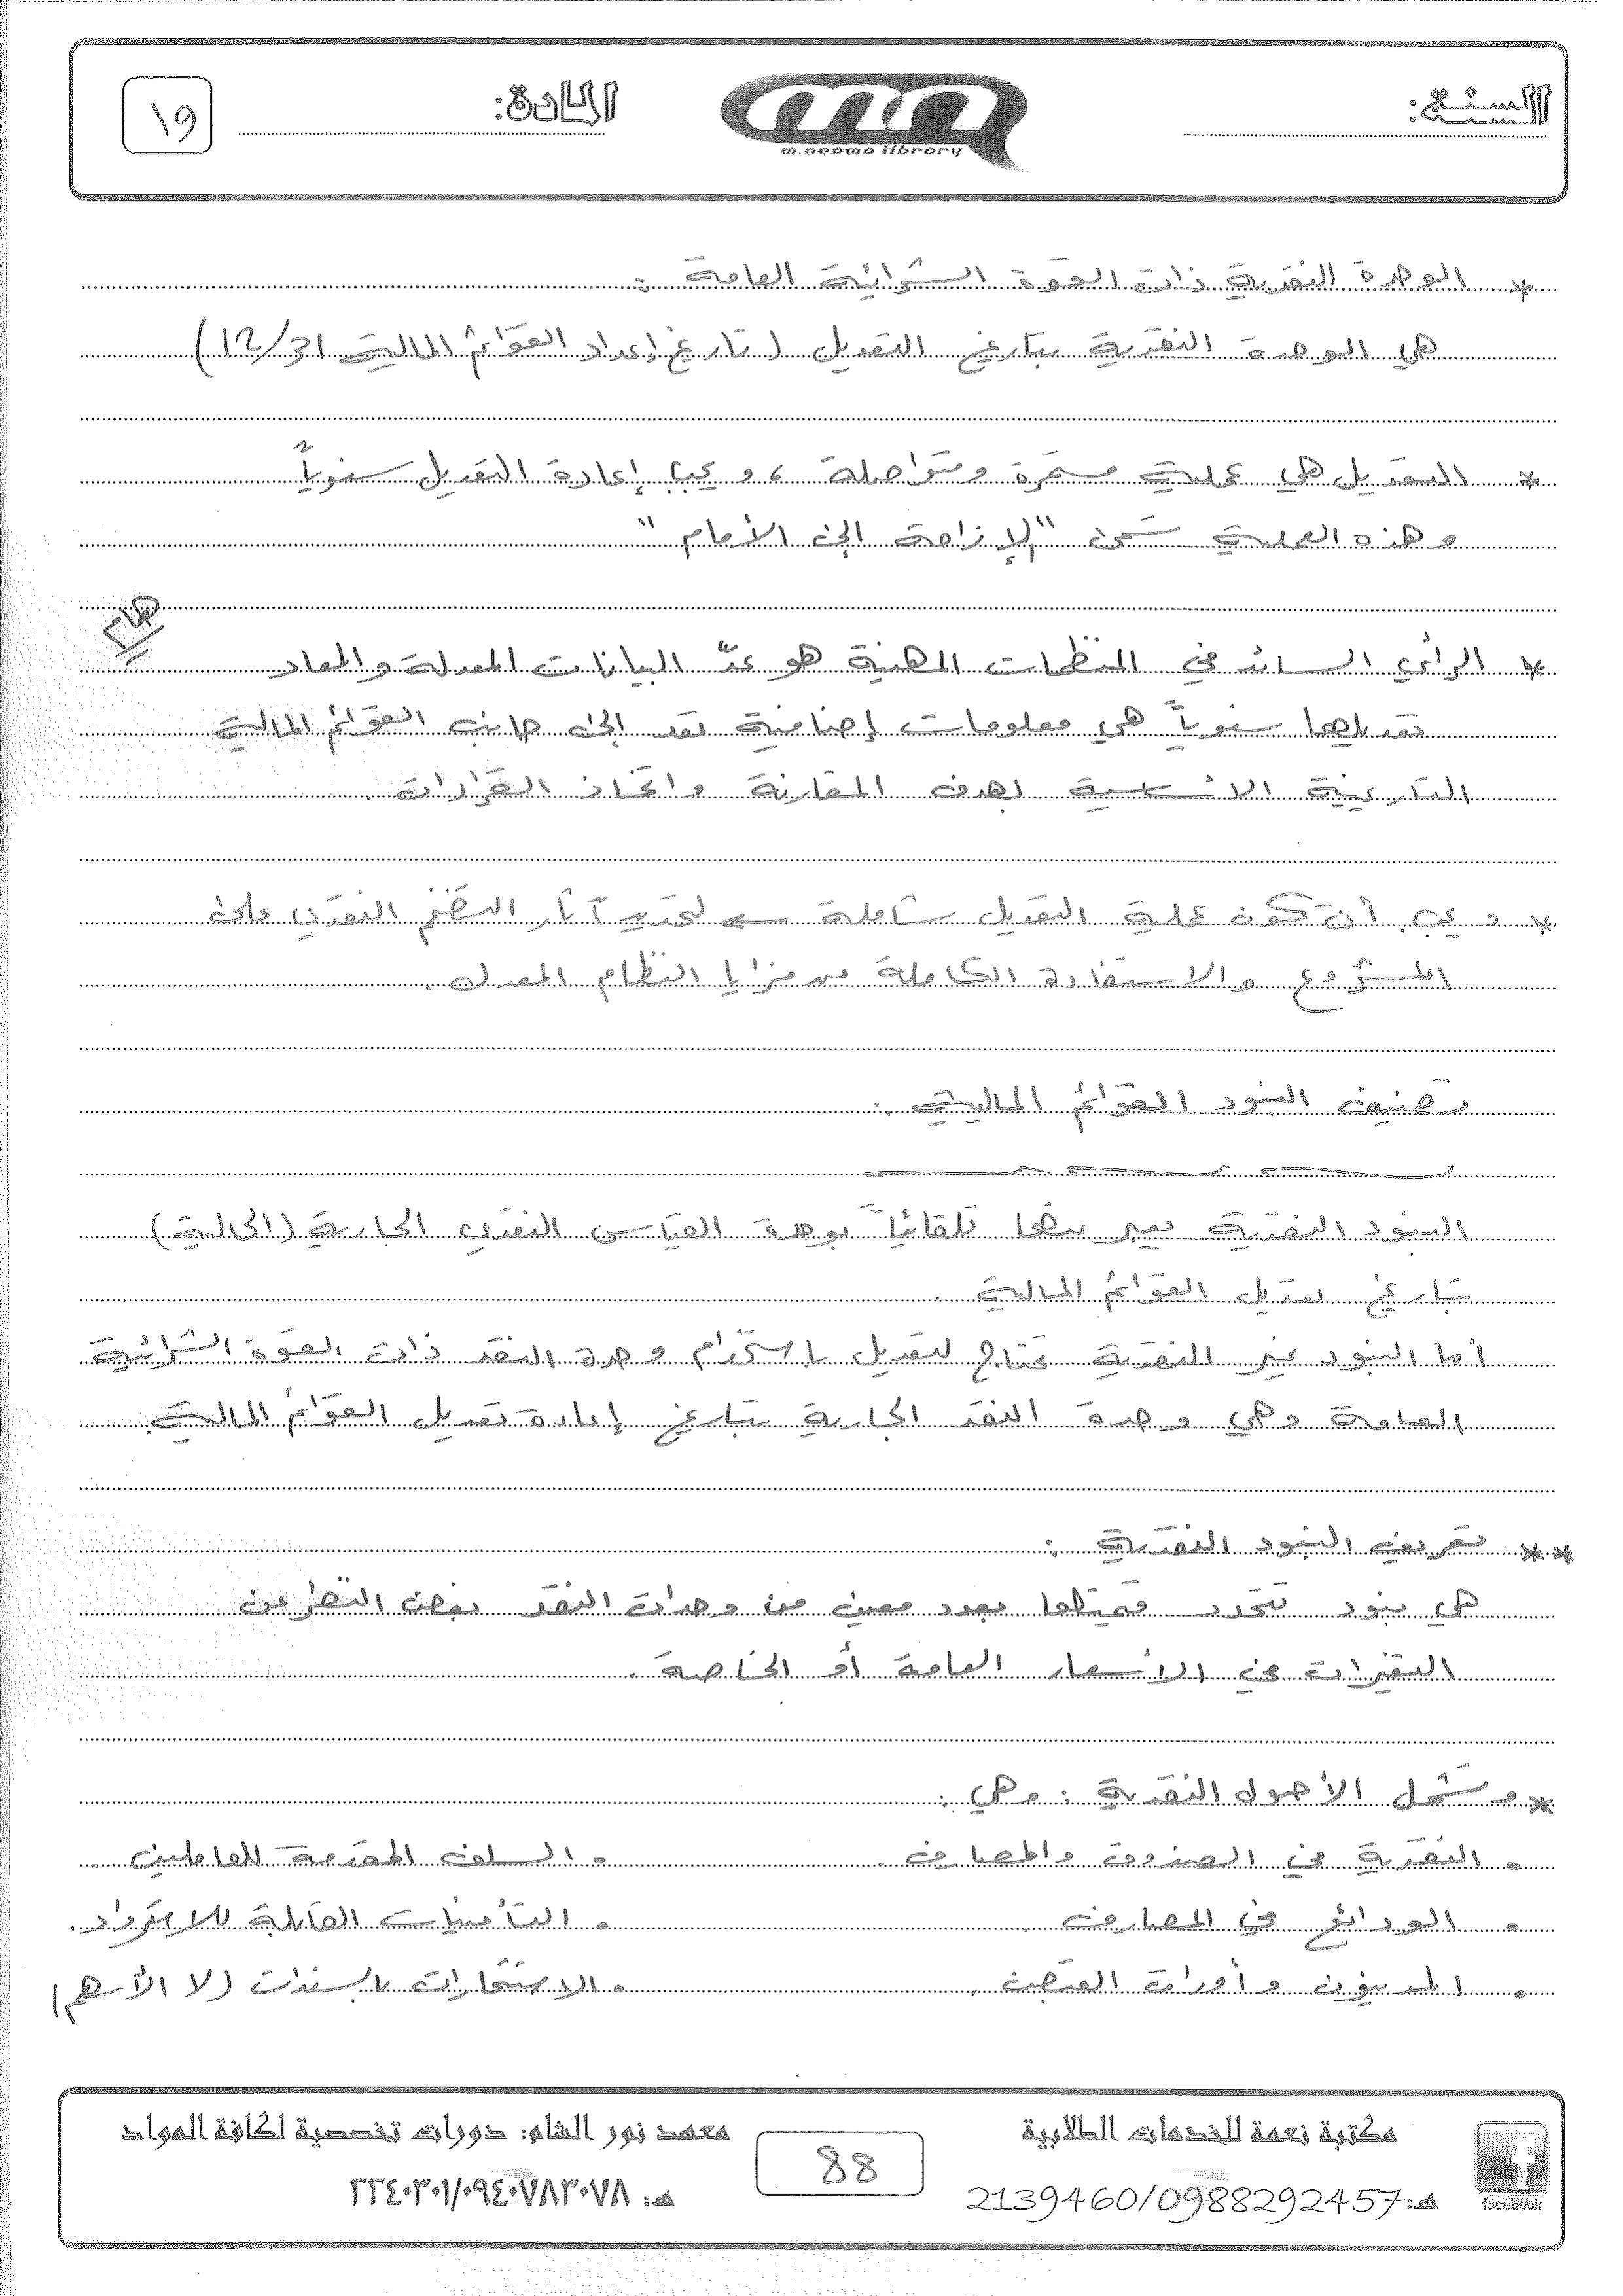 السنة:
m.neama library
المادة:
١٩
* الوحدة النقدية ذات القوة الشرائية العامة :
هي الوحدة النقدية بتاريخ التعديل (تاريخ إعداد القوائم المالية 12/31)
* التعديل هي عملية مستمرة ومتواصلة ، ويجب إعادة التعديل سنوياً
وهذه العملية تسمى "الإزاحة إلى الأمام"
هام
* الرأي السائد في المنظمات المهنية هو عدّ البيانات المعدلة والمعاد
تعديلها سنوياً هي معلومات إضافية تعد إلى جانب القوائم المالية
التاريخية الأساسية بهدف المقارنة واتخاذ القرارات .
* ويجب أن تكون عملية التعديل شاملة لتحديد آثار التضخم النقدي على
المشروع والاستفادة الكاملة من مزايا النظام المعدل .
تصنيف البنود القوائم المالية :
البنود النقدية يعبر عنها تلقائياً بوحدة القياس النقدي الجارية (الحالية)
بتاريخ تعديل القوائم المالية .
أما البنود غير النقدية تحتاج لتعديل باستخدام وحدة النقد ذات القوة الشرائية
العامة وهي وحدة النقد الجارية بتاريخ إعادة تعديل القوائم المالية .
** تعريف البنود النقدية :
هي بنود تتحدد قيمتها بعدد معين من وحدات النقد بغض النظر عن
التغيرات في الأسعار العامة أو الخاصة .
* وتشمل الأصول النقدية : وهي :
• النقدية في الصندوق والمصارف . • السلف المقدمة للعاملين .
• الودائع في المصارف . • التأمينات القابلة للاسترداد .
• المدينون وأوراق القبض . • الاستثمارات بالسندات (لا الأسهم)
مكتبة نعمة للخدمات الطلابية
هـ: 2139460/0988292457
facebook
88
معهد نور الشام: دورات تخصصية لكافة المواد
هـ: ٢٢٤٠٣٠١/٠٩٤٠٧٨٣٠٧٨